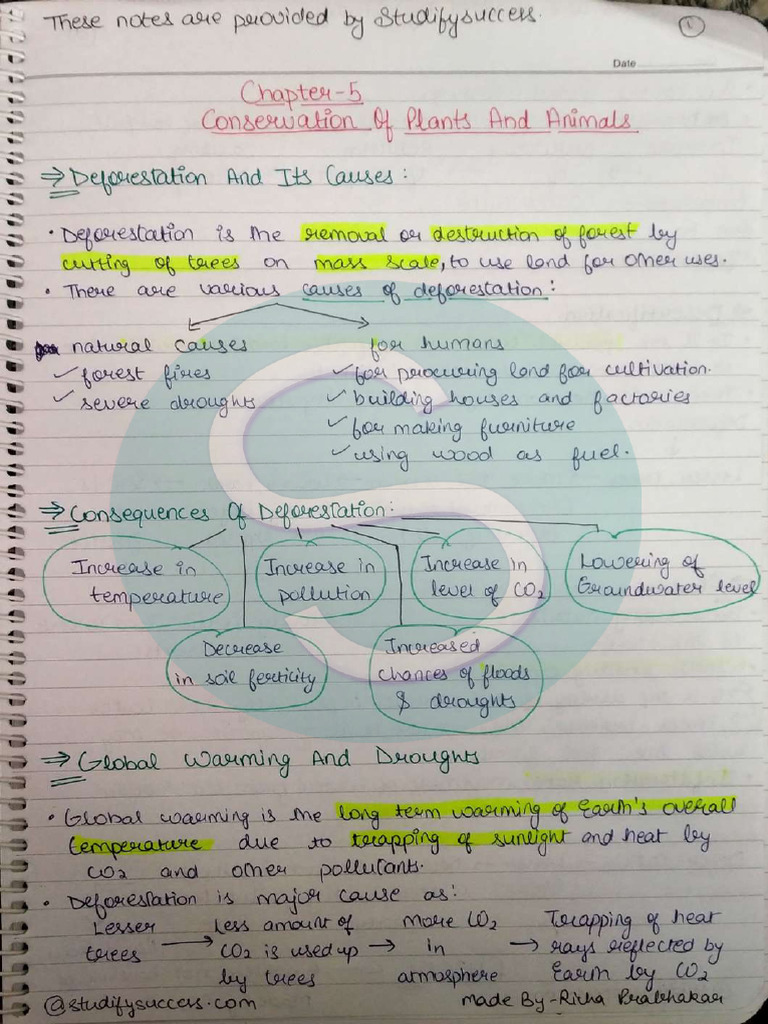 These notes are provided by Studifysuccess.
1
Date
Chapter-5
Conservation Of Plants And Animals
⇒ Deforestation And Its Causes:
• Deforestation is the removal or destruction of forest by
cutting of trees on mass scale, to use land for other uses.
• There are various causes of deforestation:
natural causes for humans
✓ forest fires ✓ for procuring land for cultivation.
✓ severe droughts ✓ building houses and factories
✓ for making furniture
✓ using wood as fuel.
⇒ Consequences Of Deforestation:
Increase in Increase in Increase in Lowering of
temperature pollution level of CO2 Groundwater level
Decrease Increased
in soil ferticity chances of floods
& droughts
⇒ Global Warming And Droughts
• Global warming is the long term warming of Earth's overall
temperature due to trapping of sunlight and heat by
CO2 and other pollutants.
• Deforestation is major cause as:
Lesser Less amount of more CO2 Trapping of heat
trees → CO2 is used up → in → rays reflected by
by trees atmosphere Earth by CO2
@studifysuccess.com made By-Richa Prabhakar